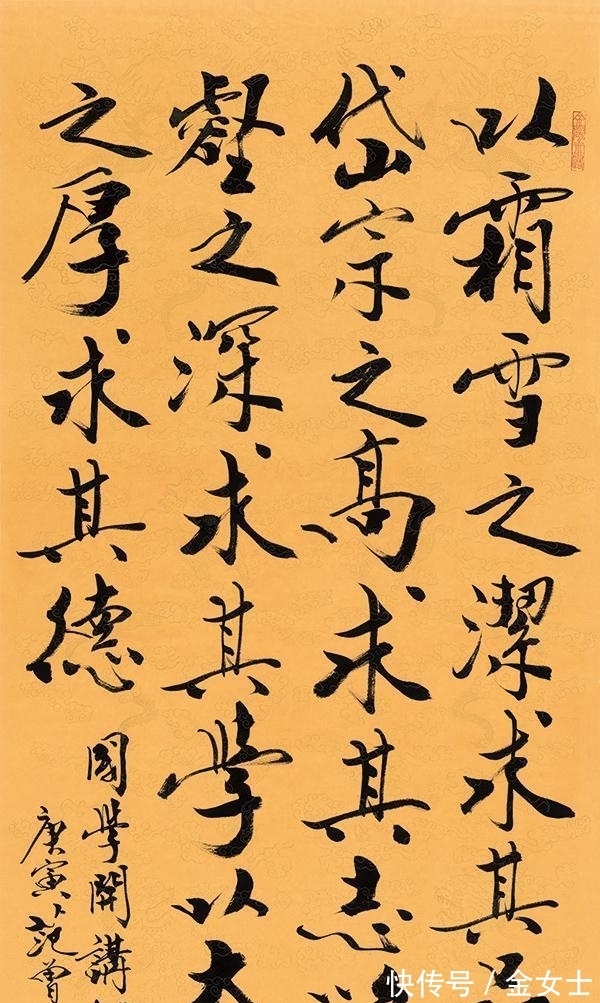 以霜雪之潔求其
岱宗之高求其志
壑之深求其學以大
之厚求其德
國學開講
庚寅 范曾
快传号 / 金女士